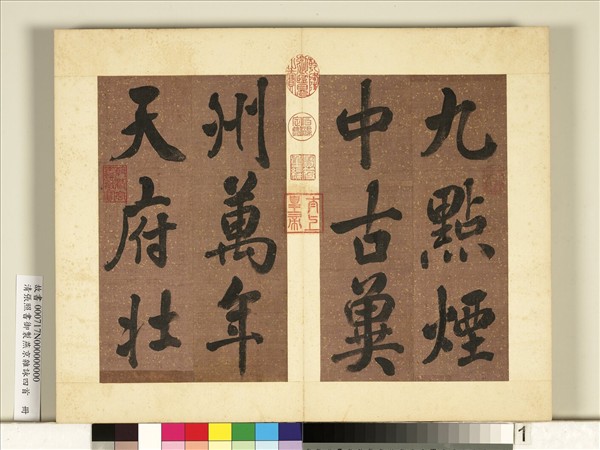 九點煙
中古冀
州萬年
天府壯
太上皇帝
故書 000717N000000000
清張照書御製燕京雜詠四首 冊
1